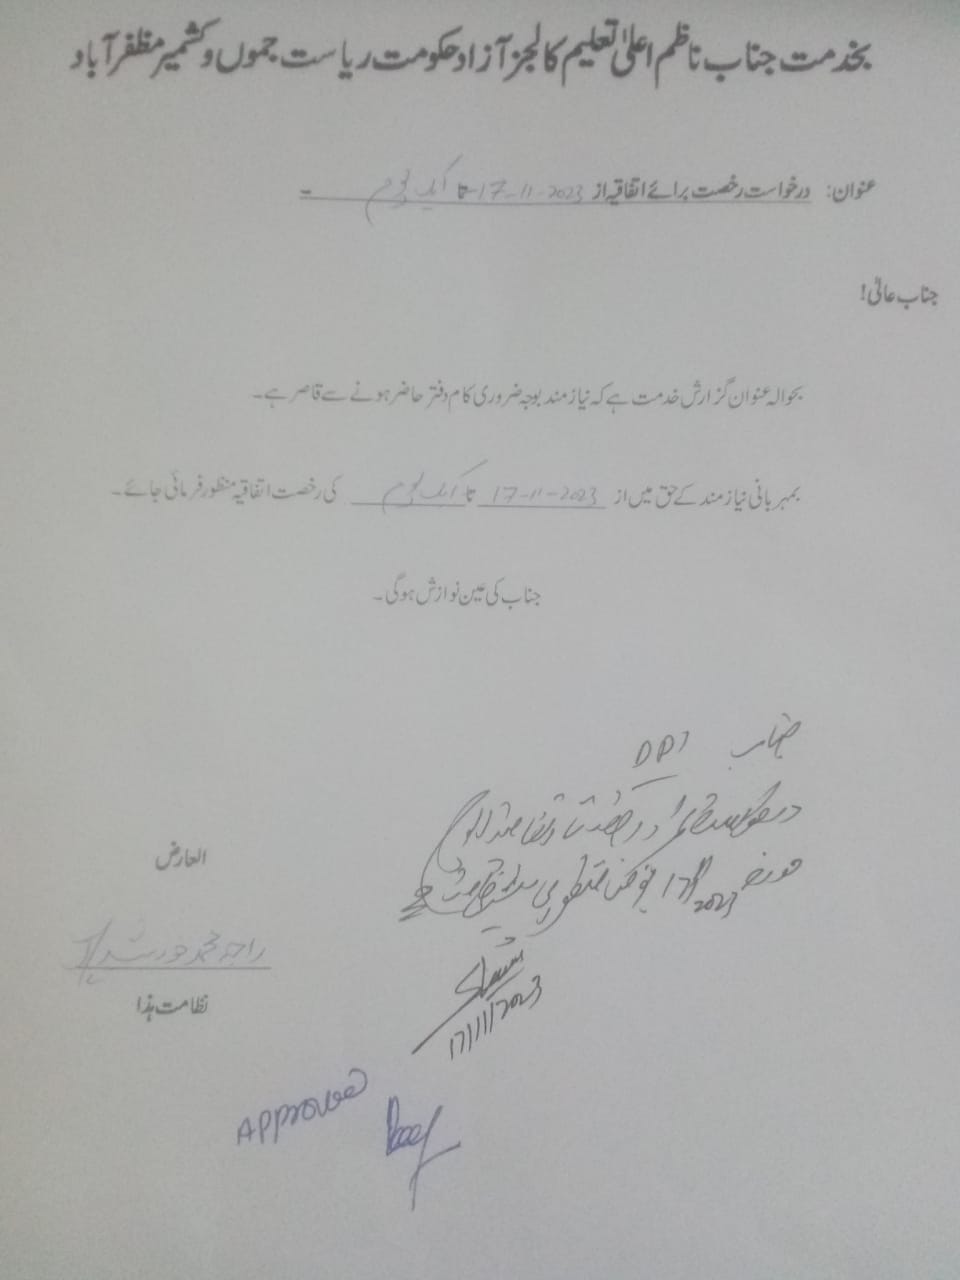 بخدمت جناب ناظم اعلیٰ تعلیم کالجز آزاد حکومت ریاست جموں و کشمیر مظفرآباد
عنوان: درخواست رخصت برائے اتفاقیہ از 17-11-2023 تا ایک یوم -
جناب عالی!
بحوالہ عنوان گزارش خدمت ہے کہ نیاز مند بوجہ ضروری کام دفتر حاضر ہونے سے قاصر ہے۔
بمہربانی نیاز مند کے حق میں از 17-11-2023 تا ایک یوم کی رخصت اتفاقیہ منظور فرمائی جائے۔
جناب کی عین نوازش ہوگی۔
جناب DPI
مورخہ 17/11/2023
17/11/2023
العارض
راجہ محمد خورشید
نظامت ہذا
Approved